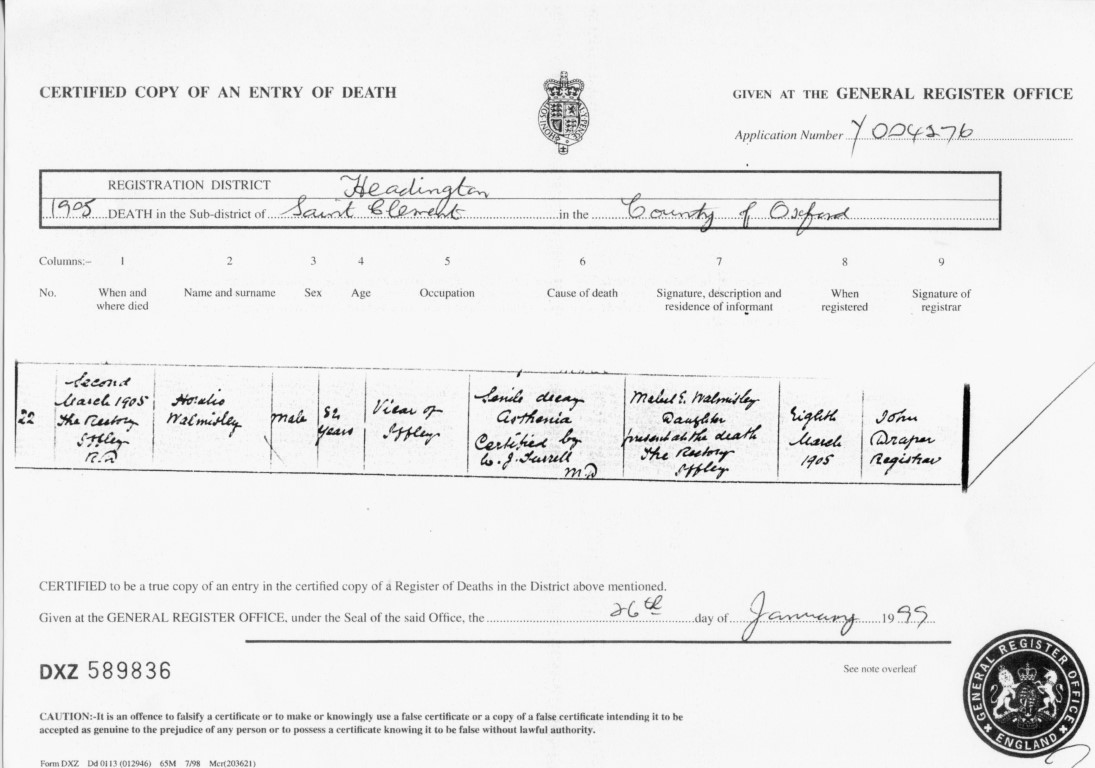 CERTIFIED COPY OF AN ENTRY OF DEATH
GIVEN AT THE GENERAL REGISTER OFFICE
Application Number Y004276
REGISTRATION DISTRICT Headington
1905 DEATH in the Sub-district of Saint Clement in the County of Oxford
Columns:– 1 2 3 4 5 6 7 8 9
No. When and where died Name and surname Sex Age Occupation Cause of death Signature, description and residence of informant When registered Signature of registrar
22
Second
March 1905
The Rectory
Iffley
R.D
Horatio
Walmisley
Male
82
years
Vicar of
Iffley
Senile decay
Asthenia
Certified by
W. J. Turrell
M.D
Mabel E. Walmisley
Daughter
present at the death
The Rectory
Iffley
Eighth
March
1905
John
Draper
Registrar
CERTIFIED to be a true copy of an entry in the certified copy of a Register of Deaths in the District above mentioned.
Given at the GENERAL REGISTER OFFICE, under the Seal of the said Office, the 26th day of January 1999
DXZ 589836
See note overleaf
CAUTION:-It is an offence to falsify a certificate or to make or knowingly use a false certificate or a copy of a false certificate intending it to be
accepted as genuine to the prejudice of any person or to possess a certificate knowing it to be false without lawful authority.
Form DXZ Dd 0113 (012946) 65M 7/98 Mcr(203621)
GENERAL REGISTER OFFICE
ENGLAND